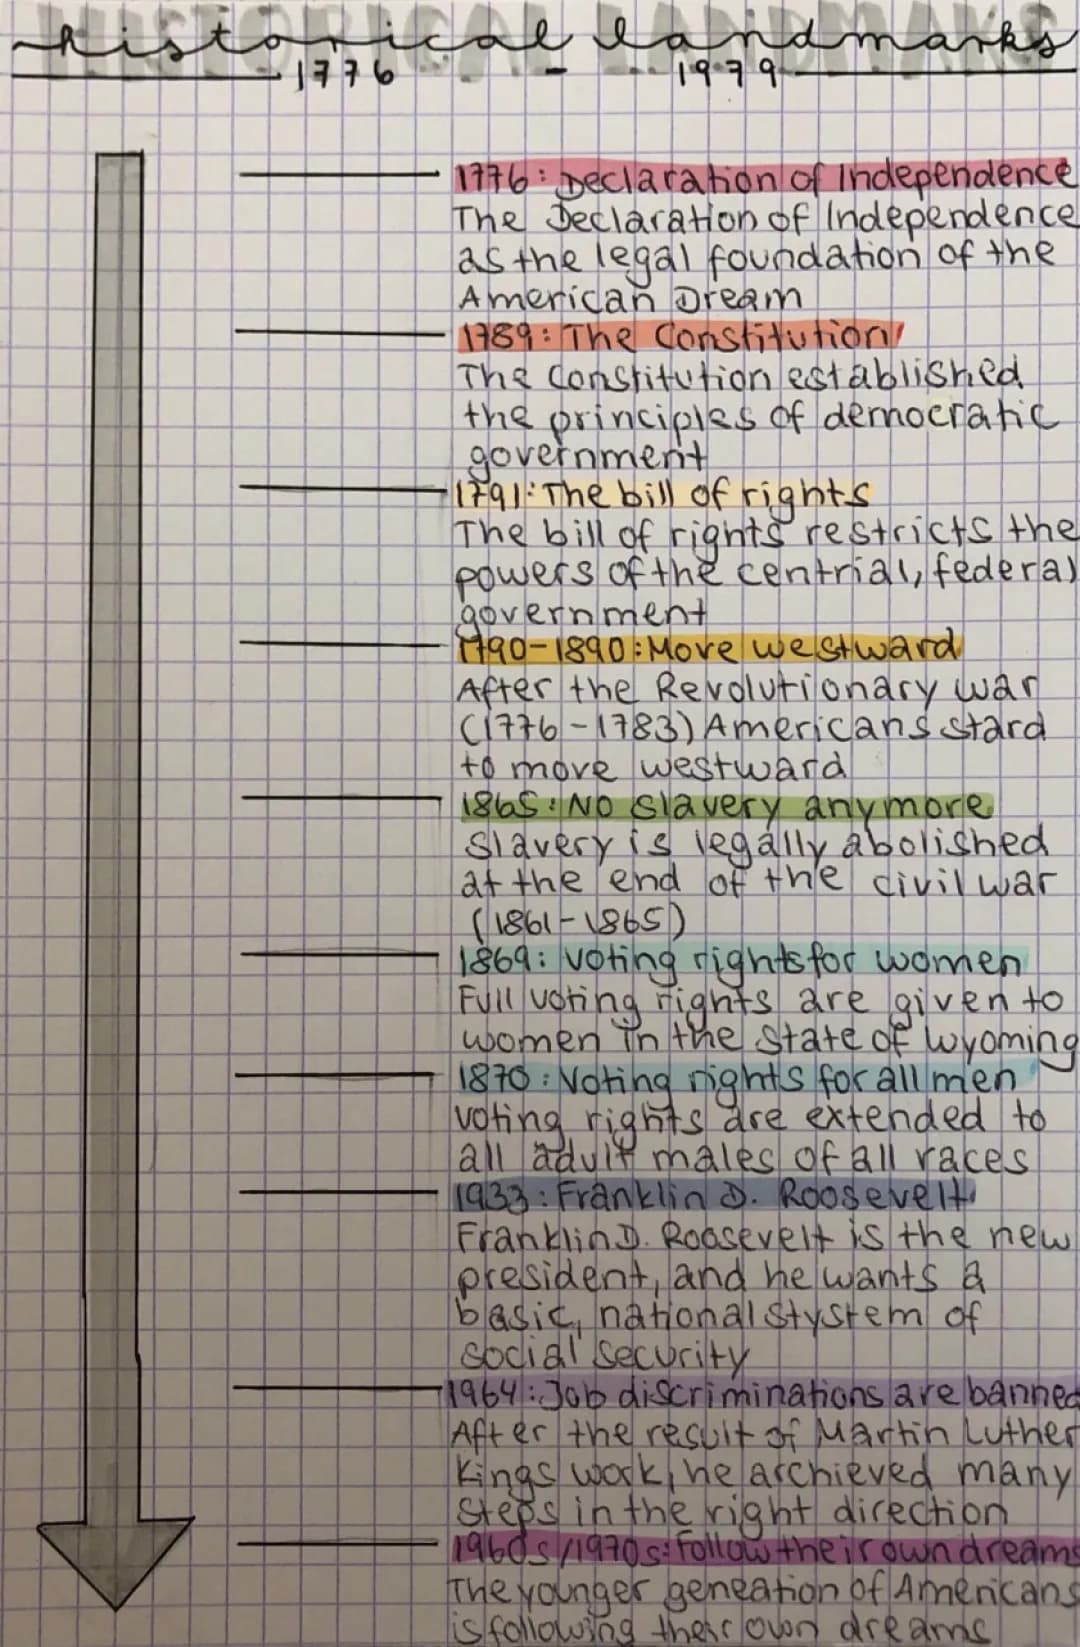 historical landmarks
1776 - 1979
1776: Declaration of Independence
The Declaration of Independence
as the legal foundation of the
American Dream
1789: The Constitution
The Constitution established
the principles of democratic
government
1791: The bill of rights
The bill of rights restricts the
powers of the centrial, federal
government
1790-1890: Move westward
After the Revolutionary war
(1776-1783) Americans stard
to move westward
1865: No slavery anymore
Slavery is legally abolished
at the end of the civil war
(1861-1865)
1869: voting rights for women
Full voting rights are given to
women in the state of wyoming
1870: Voting rights for all men
voting rights are extended to
all adult males of all races
1933: Franklin D. Roosevelt
Franklin D. Roosevelt is the new
president, and he wants a
basic, national stystem of
social security
1964: Job discriminations are banned
After the result of Martin Luther
Kings work, he archieved many
steps in the right direction
1960s/1970s: follow their own dreams
The younger geneation of Americans
is following their own dreams